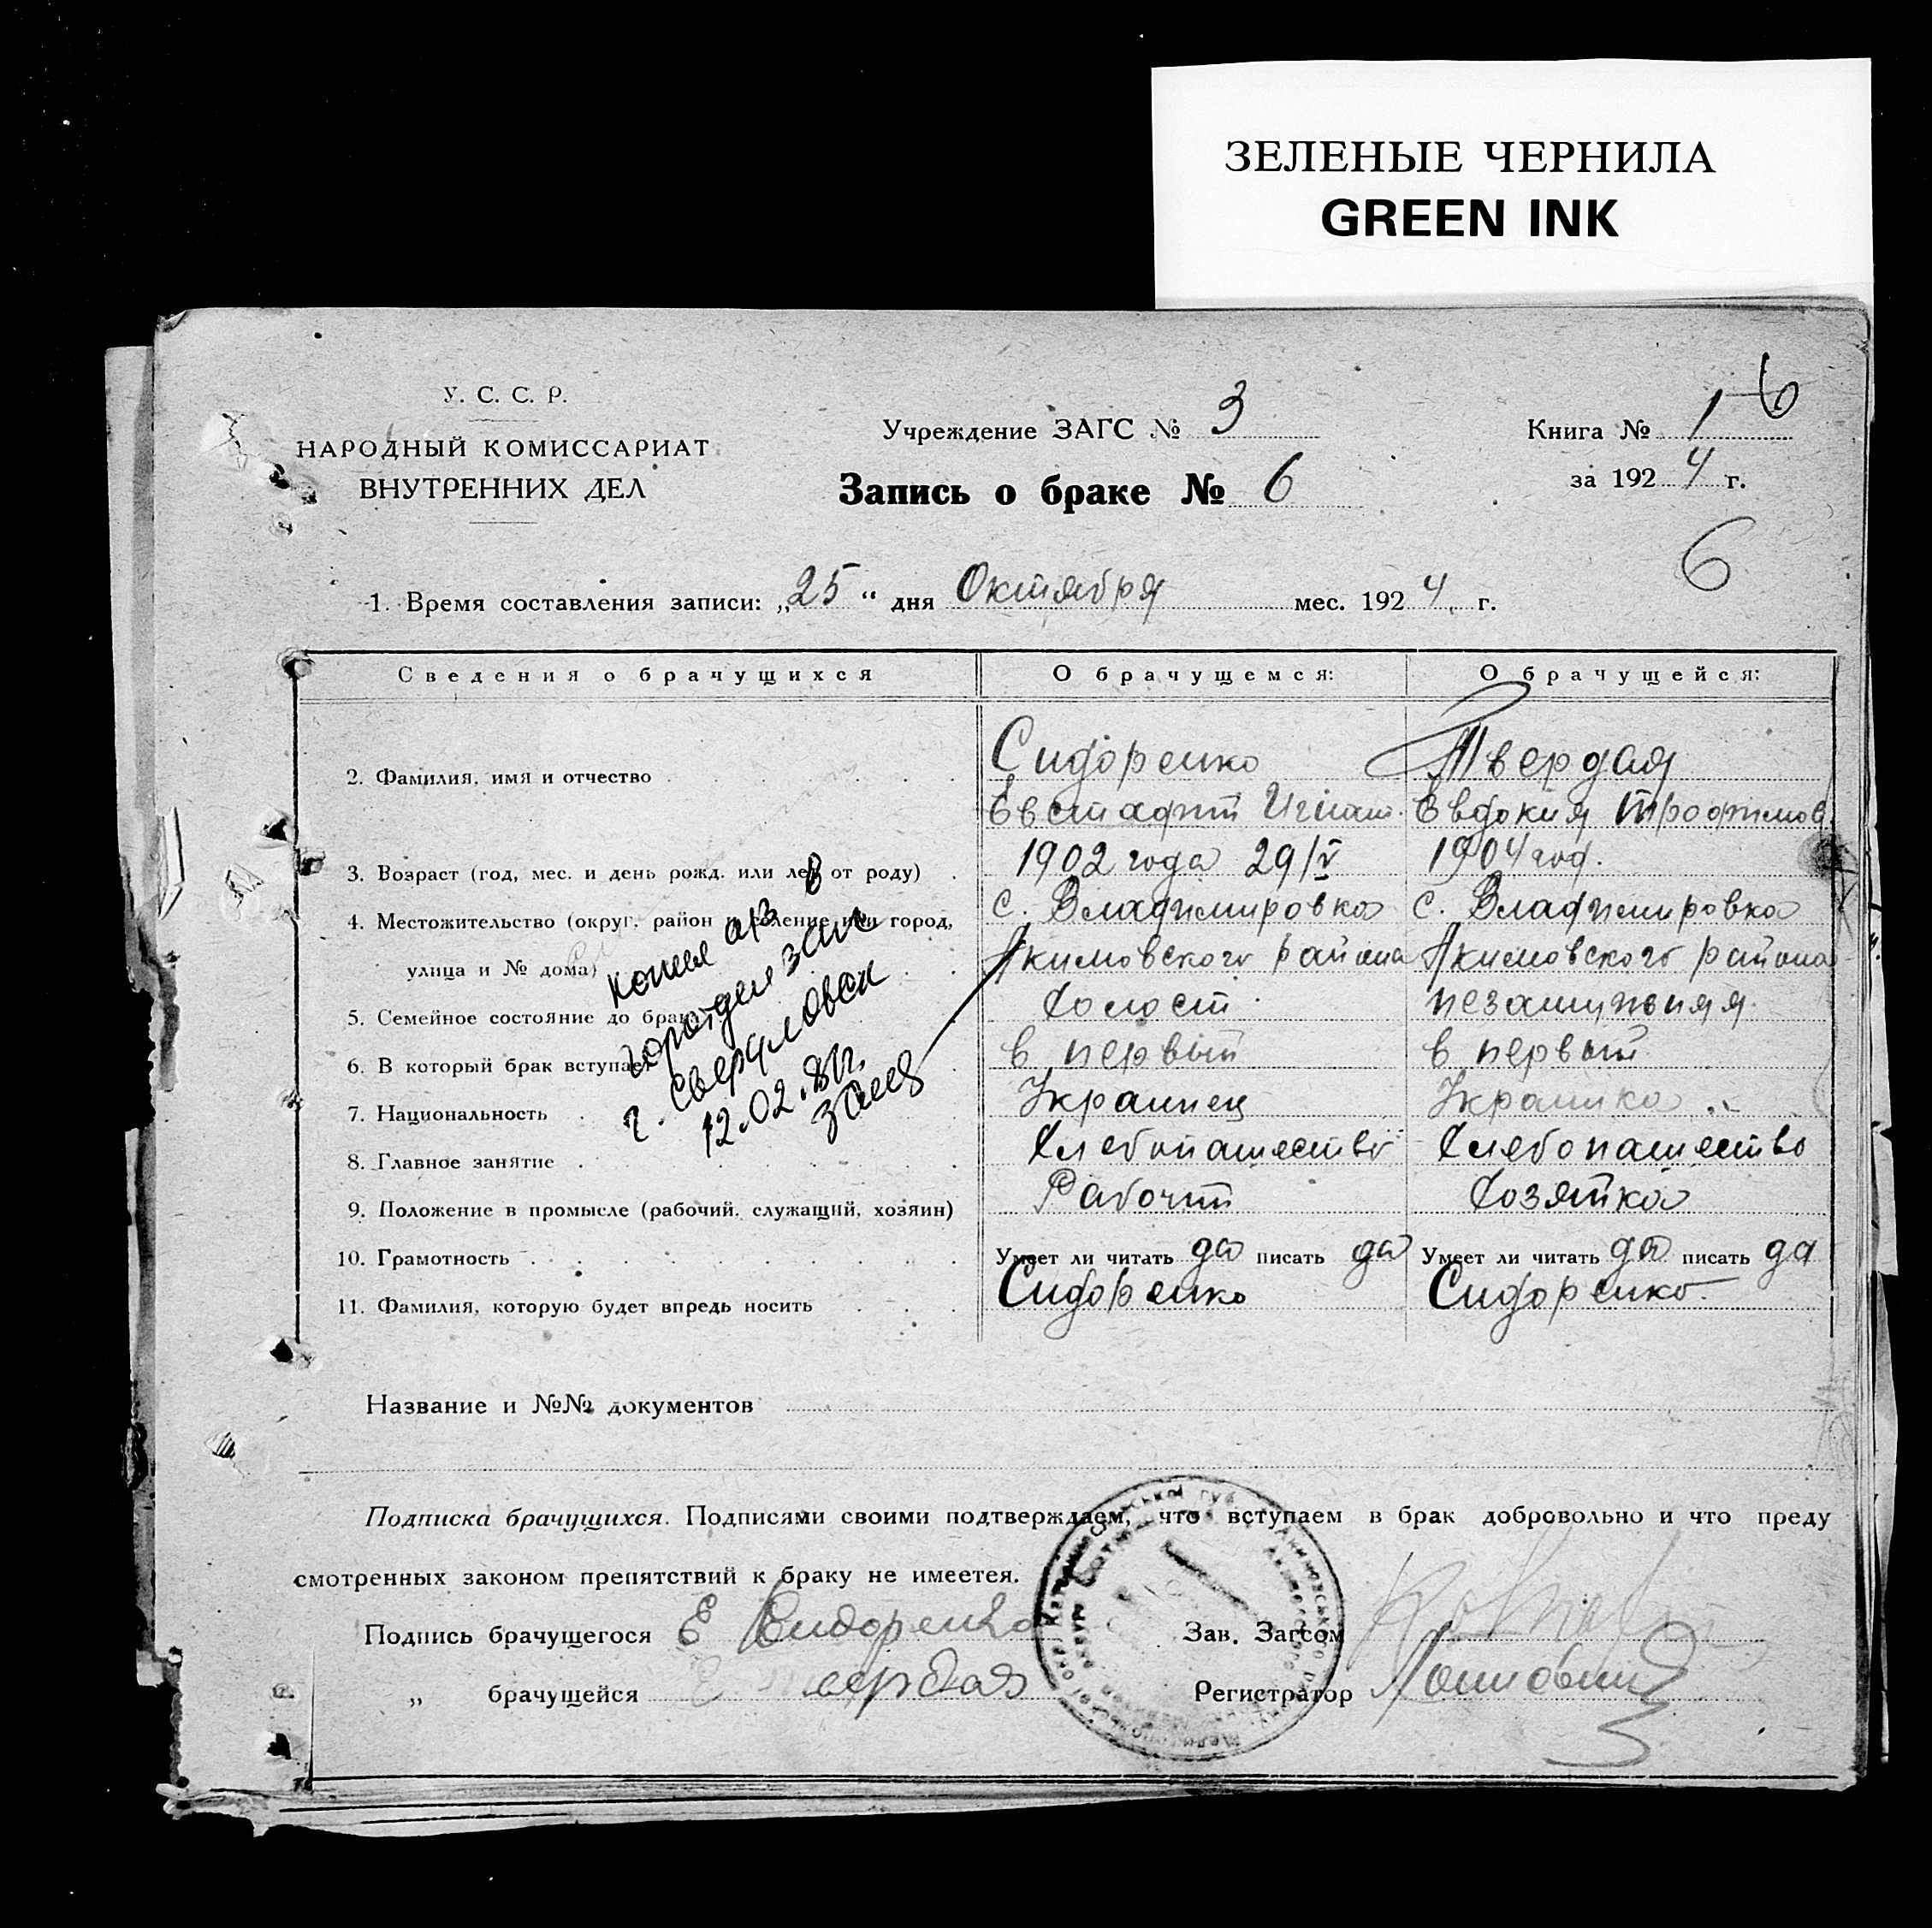 ЗЕЛЕНЫЕ ЧЕРНИЛА
GREEN INK
У. С. С. Р.
НАРОДНЫЙ КОМИССАРИАТ
ВНУТРЕННИХ ДЕЛ
Учреждение ЗАГС № 3
Запись о браке № 6
Книга № 1
6
за 1924 г.
6
1. Время составления записи: „25“ дня Октября мес. 1924 г.
Сведения о брачущихся О брачущемся: О брачущейся:
2. Фамилия, имя и отчество Сидоренко Твердая
Евстафий Игнат. Евдокия Трофимов
3. Возраст (год, мес. и день рожд. или лет от роду) 1902 года 29/V 1904 год.
4. Местожительство (округ, район и селение или город, с. Владимировка с. Владимировка
улица и № дома) Акимовского района Акимовского района
5. Семейное состояние до брака Холост незамужняя
6. В который брак вступает в первый в первый
7. Национальность Украинец Украинка
8. Главное занятие Хлебопашество Хлебопашество
9. Положение в промысле (рабочий, служащий, хозяин) Рабочий Хозяйка
10. Грамотность Умеет ли читать да писать да Умеет ли читать да писать да
11. Фамилия, которую будет впредь носить Сидоренко Сидоренко
копия а/з в
горотдел загс
г. Свердловск
12.02.81г.
Название и №№ документов
Подписка брачущихся. Подписями своими подтверждаем, что вступаем в брак добровольно и что преду
смотренных законом препятствий к браку не имеется.
Подпись брачущегося Е Сидоренко Зав. Загсом
„ брачущейся Е Твердая Регистратор